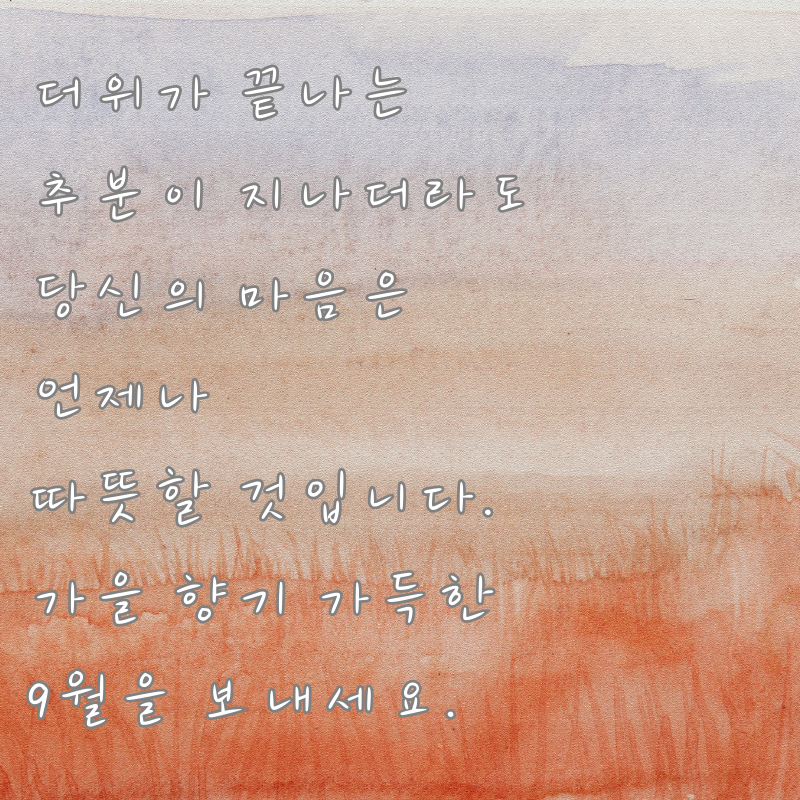 더위가 끝나는
추분이 지나더라도
당신의 마음은
언제나
따뜻할 것입니다.
가을 향기 가득한
9월을 보내세요.